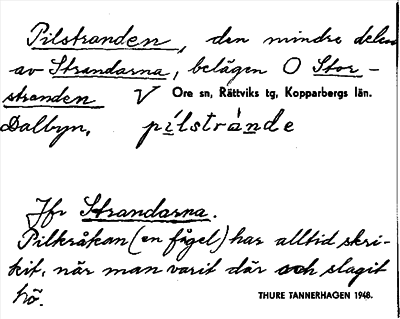 Pilstranden, den mindre delen
av Strandarna, belägen O Stor-
stranden V Ore sn, Rättviks tg, Kopparbergs län.
Dalbyn. pilstrànde
Jfr Strandarna.
Pilkråkan (en fågel) har alltid skri-
kit, när man varit där och slagit
hö. THURE TANNERHAGEN 1948.